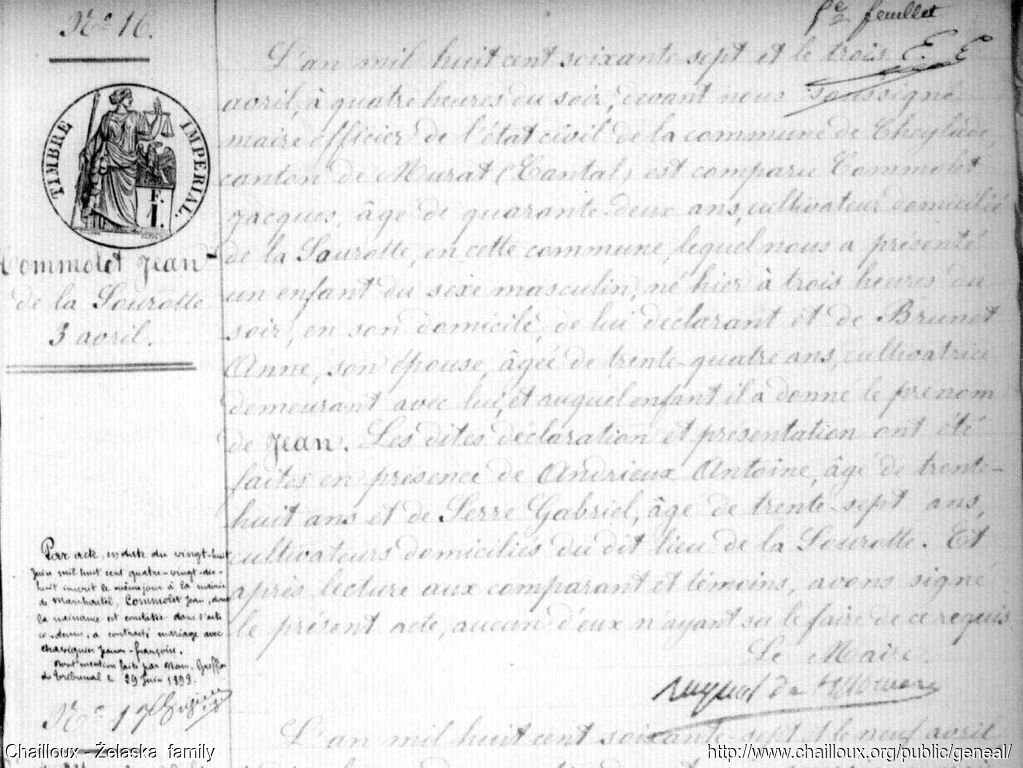 N° 16.
TIMBRE IMPERIAL.
Commolet Jean
de la Sourotte
3 avril.
2e feuillet
L'an mil huit cent soixante sept et le trois
avril, à quatre heures du soir, devant nous soussigné
maire officier de l'état civil de la commune de Cheylade,
canton de Murat (Cantal) est comparu Commolet
Jacques, âgé de quarante-deux ans, cultivateur domicilié
de la Sourotte, en cette commune, lequel nous a présenté
un enfant du sexe masculin, né hier à trois heures du
soir, en son domicile, de lui déclarant et de Brunet
Anne, son épouse, âgée de trente-quatre ans, cultivatrice
demeurant avec lui, et auquel enfant il a donné le prenom
de Jean. Les dites déclaration et présentation ont été
faites en présence de Andrieux Antoine, âgé de trente-
huit ans et de Serre Gabriel, âgé de trente-sept ans,
cultivateurs domiciliés du dit lieu de la Sourotte. Et
après lecture aux comparant et témoins, avons signé
le présent acte, aucun d'eux n'ayant su le faire de ce requis
Le Maire.
Par acte, en date du vingt-huit
Juin mil huit cent quatre-vingt-dix-
huit inscrit le même jour à la mairie
de Marchastel, Commolet Jean, dont
la naissance est constatée dans l'acte
ci-dessus, a contracté mariage avec
Chasseignier Jeanne-françoise.
Dont mention faite par Nous, Greffier
du tribunal le 29 Juin 1898.
N° 17
L'an mil huit cent soixante-sept et le neuf avril
Chailloux - Żelaska family
http://www.chailloux.org/public/geneal/